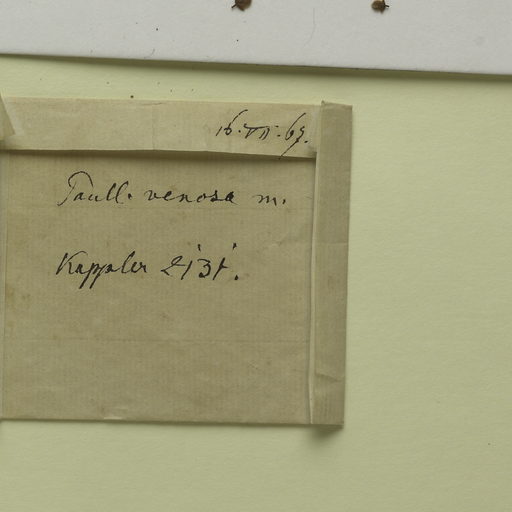 16. VII. 67.
Paull. venosa m.
Kappler 2131.